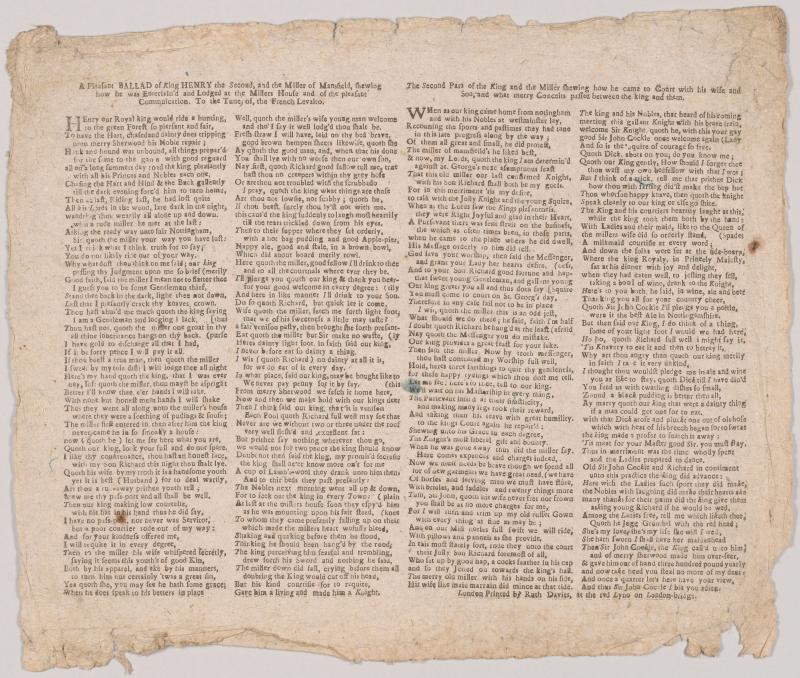 A Pleasant BALLAD of King HENRY the Second, and the Miller of Mansfield, shewing
how he was Entertain'd and Lodged at the Millers House and of the pleasant
Communication. To the Tune, of, the French Levalto.
HEnry our Royal king would ride a hunting,
to the green Forest so pleasant and fair,
To have the Hart, chased and dainty does tripping
unto merry Sherwood his Noble repair;
Hawk and hound was unbound, all things prepar'd
for the same to the game with good regard
all a long summers day rode the king pleasantly
with all his Princes and Nobles each one,
Chasing the Hart and Hind & the Buck gallently
till the dark evening forc'd him to turn home,
Then at last, Riding fast, he had lost quite
All his Lords in the wood, late dark in the night,
wandring thus wearily all alone up and down.
with a rude miller he met at the last;
Asking the ready way unto fair Nottingham,
Sir quoth the miller your way you have lost:
Yet I think what I think truth for to say,
You do not likely ride out of your way.
Why what dost thou think on me said our king
passing thy Judgment upon me so brief (merrily
Good faith, said the miller I mean not to flatter thee
I guess you to be some Gentleman thief,
Stand thee back in the dark, light thee not down,
Lest that I presantly crack thy knaves, crown.
Thou hast abus'd me much quoth the king saying
I am a Gentleman and lodging I lack, (thus
Thou hast not, quoth the miller one groat in thy
all thine inheritance hangs on thy back. (purse
I have gold to discharge all that I had,
If it be forty pence I will pay it all.
If thou beest a true man, then quoth the miller
I swear by my tole dish I will lodge thee all night
Here's my hand quoth the king, that I was ever
nay, soft quoth the miller, thou mayst be a spright
Better I'll know thee e'er hands I will take
With none but honest mens hands I will shake
Thus they went all along unto the miller's house
where they were a seething of puddings & souse;
The miller first entered in, then after him the king
never came he in so smoaky a house:
now (quoth he) let me see here what you are,
Quoth our king, look your fill and do not spare.
I like thy countenance, thou hast an honest face,
with my Son Richard this night thou shalt lye.
Quoth his wife by my troth it is a handsome youth
yet it is best (Husband) for to deal warily,
Art thou a runaway prithee youth tell;
shew me thy pass-port and all shall be well,
Then our king making low courtesie,
with his hat in his hand thus he did say,
I have no passport, nor never was Servitor,
but a poor courtier rode out of my way:
And for your kindness offered me,
I will requite it in every degree,
Then to the miller his wife whispered secretly,
saying it seems this youth's of good Kin,
Both by his apparel, and eke by his manners,
to turn him out certainly 'twas a great sin,
Yea quoth she, you may see he hath some grace;
When he does speak to his betters in place
Well, quoth the miller's wife young man welcome
and tho' I say it well lodg'd thou shalt be.
Fresh straw I will have, laid on thy bed brave,
good brown hempen sheets likewise, quoth she
Ay quoth the good man, and, when that his done
You shall lye with no worse then our own son,
Nay first, quoth Richard good fellow tell me, true
hast thou no creepers within thy grey hose
Or art thou not troubled with the scrubbado
I pray, quoth the king what things are those
Art thou not lowsie, nor scabby; quoth he,
if thou beest surely thou ly'st not with me.
this caus'd the king suddenly to laugh most heartily
till the tears trickled down from his eyes.
Then to their supper where they set orderly,
with a hot bag pudding and good Apple-pies,
Nappy ale, good and stale, in a brown bowl,
Which did about board merily trowl.
Here quoth the miller, good fellow I'll drink to thee
and to all the courtnals where ever they be.
I'll pledge you quoth our king & thank you heartily
for your good welcome in every degree:
And here in like manner I'll drink to your Son.
Do so quoth Richard, but quick let it come,
Wife quoth the miller, fetch me forth light foot,
that we of his sweetness a little may taste:
a fair venison pasty, then brought she forth presant-
Eat quoth the miller but Sir make no waste, (ly
Heres dainty light foot. In faith said our king,
I never before eat so dainty a thing.
I wis (quoth Richard) no dainty at all it is,
for we do eat of it every day.
In what place, said our king, may be bought like to
We never pay penny for it by say. (this
From merry Sherwood we fetch it home here,
Now and then we make bold with our kings deer
Then I think said our king, that it is venison
Each Fool quoth Richard full well may see that
Never are we without two or three under the roof
very well flesh'd and excellent fat:
But prithee say nothing wherever thou go,
we would not for two pence the king should know
Doubt not then said the king, my promis'd secresie
the king shall ne'er know more on't for me
A cup of Lambs-wool they drank unto him then
And to their beds they past presantly:
The Nobles next morning went all up & down,
For to seek out the king in every Town: (plain
At last at the millers house soon they spy'd him
as he was mounting upon his fair steed, (knee
To whom they came presently falling up on their
which made the millers heart wofully bleed,
Shaking and quaking before them he stood,
Thinking he should been hang'd by the rood;
The king perceiving him fearful and trembling,
drew forth his Sword and nothing he said,
The miller down did fall, crying before them all
doubting the King would cut off his head,
But his kind courtisie for to requite,
Gave him a living and made him a Knight.
The Second Part of the King and the Miller shewing how he came to Court with his wife and
Son, and what merry Conceits passed between the king and them.
WHen as our king came home from nottingham
and with his Nobles at westminster lay,
Recounting the sports and pastimes they had tane
in this late progress along by the way;
Of them all great and small, he did protest,
The miller of mansfield's he liked best,
& now, my Lords, quoth the king I am determin'd
against st. George's next sumptuous feast
That this old miller our last confirmed Knight,
with his Son Richard shall both be my guests
For in this merriment 'tis my desire,
to talk with the Jolly Knight and the young Squire,
Then as the Lords saw the Kings pleasantness,
they were Right Joyful and glad in their Heart,
A Pursevant there was sent strait on the business,
the which as often times been, in those parts,
when he came to the place where he did dwell,
His Message orderly to him did tell.
God save your worship, then said the Messenger,
and grant your Lady her hearts desire, (case,
And to your Son Richard good fortune and hap-
that sweet young Gentleman, and gallant young
Our king greets you all and thus doth say (Squire
You must come to court on St. Georg's day,
Therefore in any case fail not to be in place
I wis, quoth the miller this is an odd jest,
What should we do there; he said, faith I'm half
I doubt quoth Richard be hang'd at the least (afraid
Nay quoth the Messenger you do mistake.
Our king provides a great feast for your sake.
Then said the miller, Now by troth messenger,
thou hast contented my Worship full well,
Hold, heres three farthings to quit thy gentleness,
for these happy tydings which thou dost me tell.
Let me see; hear'st thou, tell to our king,
We'll wait on his Mastership in every thing,
The Pursevant smil'd at their simplicity,
and making many legs took their reward,
And taking then his leave with great humility
to the kings Court again he repair'd;
Shewing unto his Grace in each degree,
The Knight's most liberal gift and bounty
When he was gone away thus did the miller say.
Here comes expences and charges indeed,
Now we must needs be brave though we spend all
for of new garments we have great need, (we have
Of horses and serving men we must have store,
With bridles, and saddles and twenty things more
Tush, sir John, quoth his wife never fret nor frown
you shall be at no more charges for me,
For I will turn and trim up my old russet Gown
with every thing as fine as may be;
And on our Mill horses full swift we will ride,
With pillows and pannels as she provide.
In this most stately sort, rode they unto the court
their Jolly Son Richard foremost of all,
Who set up by good hap, a cocks feather in his cap
and so they Jetted on towards the king's hall.
The merry old miller, with his hands on his side,
His wife like maid marrain did mince at that tide.
The king and his Nobles, that heard of his coming
meeting this gallant Knight with his brave train,
welcome Sir Knight, quoth he, with this your gay
good Sir John Cockle once welcome again (Lady
And so is the Squire of courage so free.
Quoth Dick, abots on you; do you know me;
Quoth our King gently, How should I forget thee
thou wast my own bedfellow with that I wot;
But I think of a trick, tell me that prithee Dick
how thou with farting did'st make the bed hot
Thou whorson happy knave, then quoth the knight
Speak cleanly to our king or else go shite.
The King and his courtiers heartily laught at this,
while the king took them both by the hand:
With Ladies and their maids, like to the Queen of
the millers wife did so orderly stand. (spades
A milkmaid courtesie at every word;
And down the folks were set at the side-board,
Where the king Royaly, in Princely Majesty,
sat at his dinner with joy and delight,
when they had eaten well, to jesting they fell,
taking a bowl of wine, drank to the Knight,
Here's to you both, he said, in wine, ale and beer
Thanking you all for your country cheer,
Quoth Sir John Cockle I'll pledge you a pottle,
were it the best Ale in Nottinghamshire.
But then said our King, I do think of a thing,
some of your light foot I would we had here,
Ho ho, quoth Richard full well I might say it,
'Tis Knavery to eat it and then to betray it,
Why art thou angry than quoth our king merrily
in faith I take it very unkind,
I thought thou wouldst pledge me in ale and wine
you are like to stay, quoth Dick till I have din'd
You feed us with twatling dishes so small,
Zound a black pudding is better then all,
Ay marry quoth our king that were a dainty thing
if a man could get one for to eat,
with that Dick arose and pluckt one out of his hose
which with heat of his breech began for to sweat
the king made a profer to snatch it away:
'Tis meat for your Master good Sir, you must stay,
Thus in merriment was the time wholly spent
and the Ladies prepared to dance,
Old Sir John Cockle and Richard in continent
unto this practice the king did advance:
Here with the Ladies such sport they did make,
the Nobles with laughing did make their hearts ake
many thanks for their pains did the king give them
asking young Richard if he would be wed,
Among the Ladies free, tell me which liketh thee,
Quoth he Jugg Grumbol with the red head;
She's my love, she's my life she will I wed,
She hath sworn I shall have her maidenhead
Then Sir John Cockle, the King, call'd unto him,
and of merry Sherwood made him over-seer,
& gave him out of hand three hundred pound yearly
and now take need you steal no more of my deer:
And once a quarter let's here have your view,
And thus Sir John Cockle I bid you adieu.
London Printed by Ruth Davies, at the red Lyno on London-bridge.